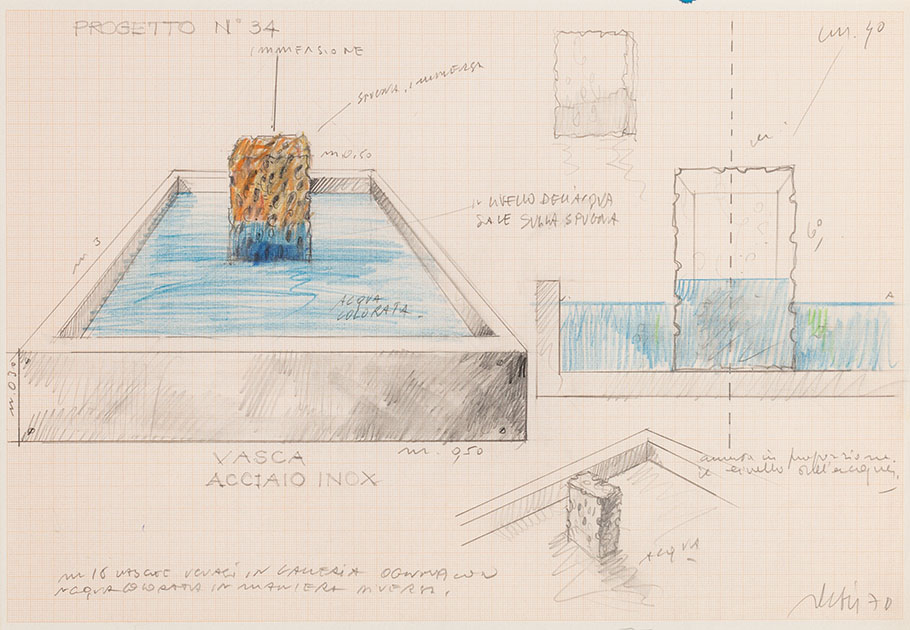 PROGETTO N° 34
IMMERSIONE
SPUGNA IMMERSA
m 0.50
cm. 40
IL LIVELLO DELL'ACQUA
SALE SULLA SPUGNA
m 3
60
ACQUA
COLORATA
m. 0.30
VASCA
m. 950
ACCIAIO INOX
aumenta in proporzione
il livello dell'acqua
ACQUA
16 VASCHE UGUALI IN GALLERIA OGNUNA CON
ACQUA COLORATA IN MANIERA DIVERSA.
70